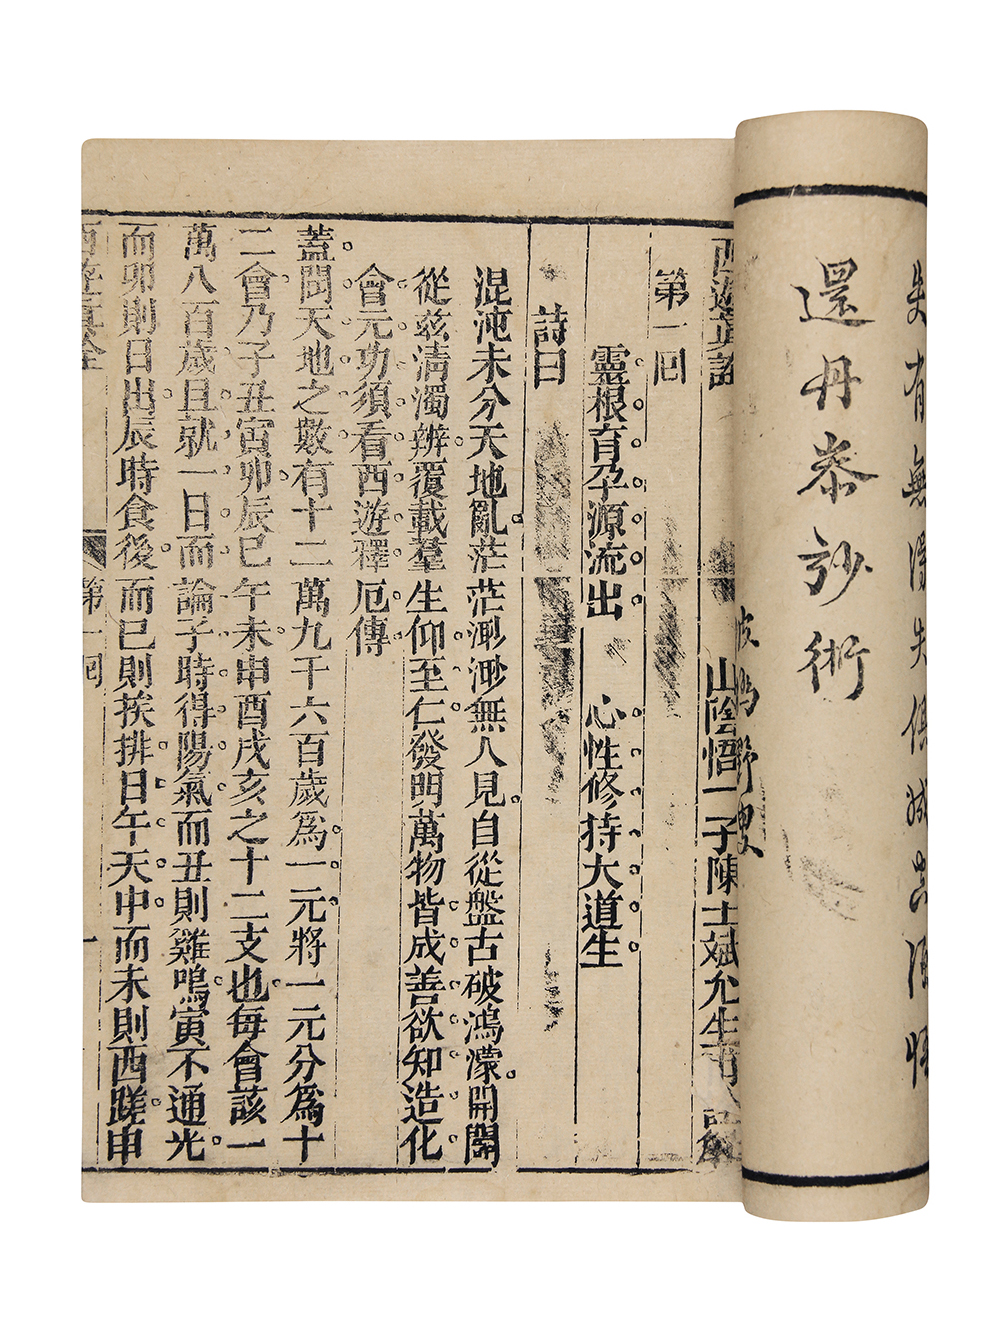 失有無得失俱
還丹泰妙術
西遊真詮
山陰悟一子陳士斌允生甫
第一回
靈根育孕源流出 心性修持大道生
詩曰
混沌未分天地亂茫茫渺渺無人見自從盤古破鴻濛開闢
從兹淸濁辨覆載羣生仰至仁發明萬物皆成善欲知造化
會元功須看西遊釋厄傳
蓋問天地之數有十二萬九千六百歲爲一元將一元分爲十
二會乃子丑寅卯辰巳午未申酉戌亥之十二支也每會該一
萬八百歲且就一日而論子時得陽氣而丑則雞鳴寅不通光
而卯則日出辰時食後而巳則挨排日午天中而未則西蹉申
西遊真詮 第一回 一